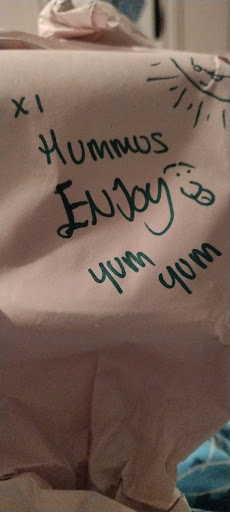 x1
Hummus
ENJOY
yum yum